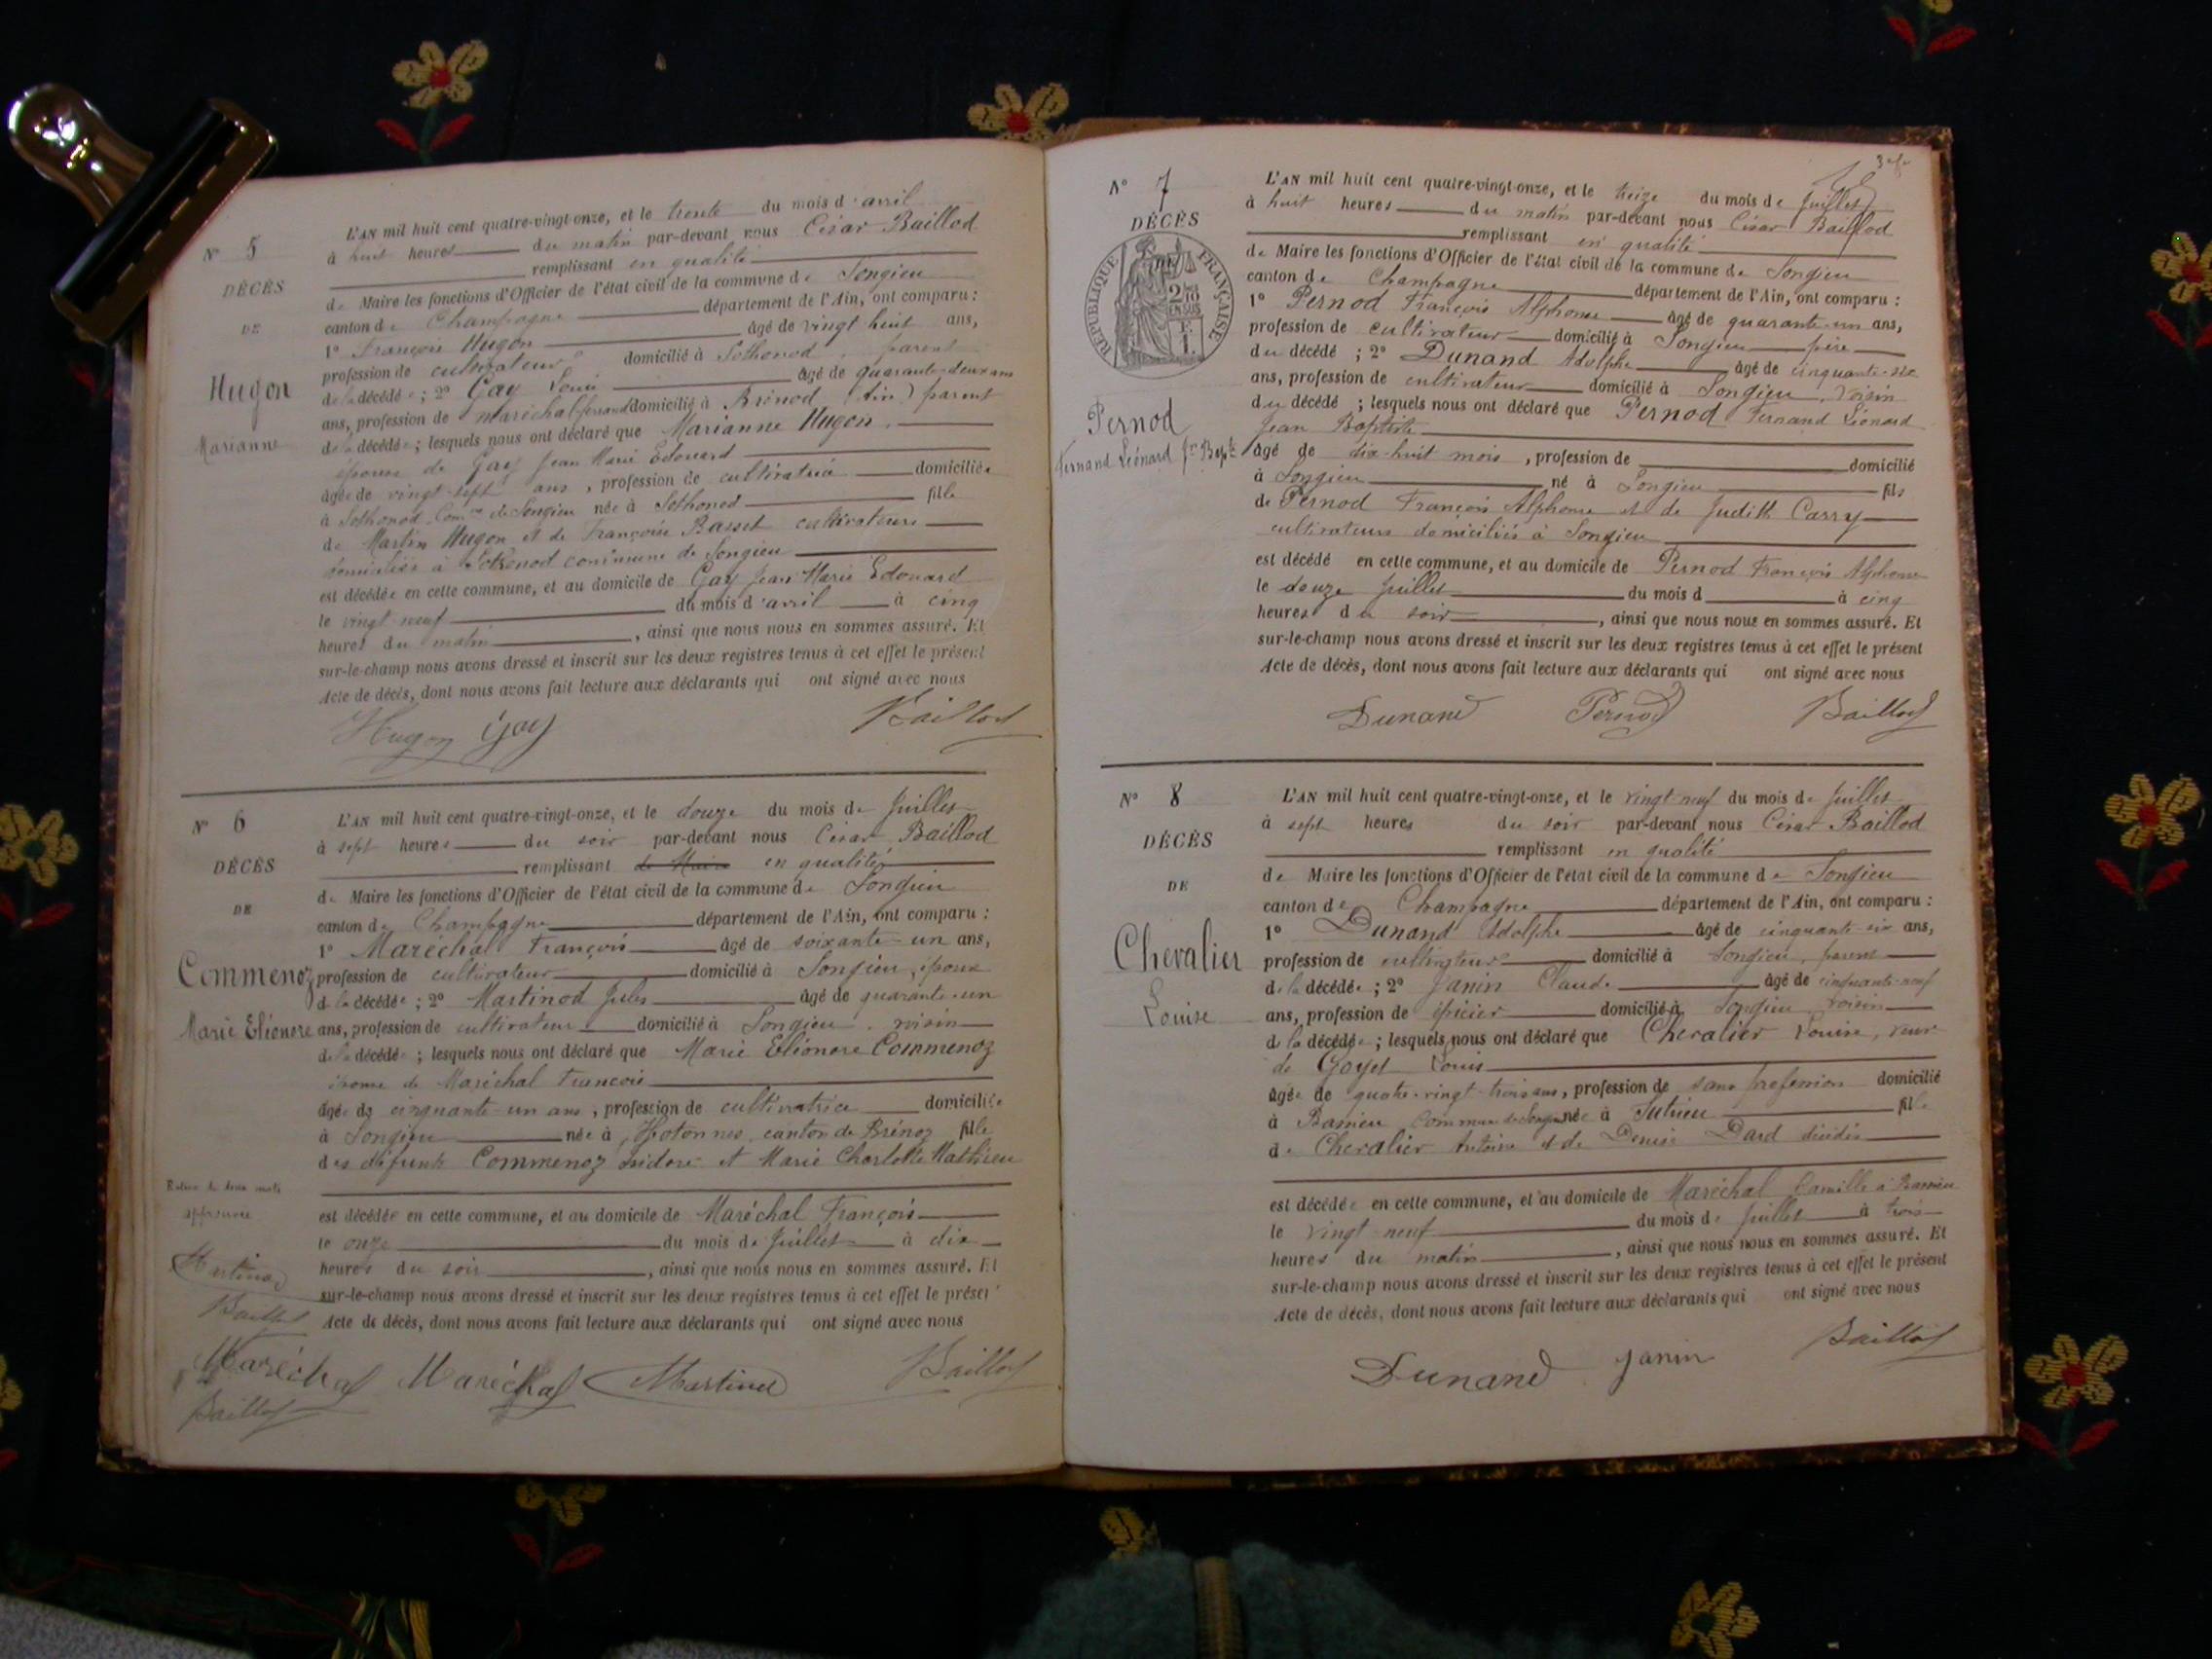 N° 5
DÉCÈS
DE
Hugon
Marianne
L'AN mil huit cent quatre-vingt-onze, et le trente du mois d'avril
à huit heures du matin par-devant nous César Baillod
remplissant en qualité
de Maire les fonctions d'Officier de l'état civil de la commune de Songieu
canton de Champagne département de l'Ain, ont comparu :
1° François Hugon âgé de vingt huit ans,
profession de cultivateur domicilié à Sothonod, parent
de la décédée ; 2° Gay Louis âgé de quarante-deux ans
ans, profession de maréchal ferrand domicilié à Brénod (Ain) parent
de la décédée ; lesquels nous ont déclaré que Marianne Hugon
épouse de Gay Jean Marie Edouard
âgée de vingt-sept ans, profession de cultivatrice domiciliée
à Sothonod Com.ne de Songieu née à Sothonod fille
de Martin Hugon et de Françoise Basset cultivateurs
domiciliés à Sothonod commune de Songieu
est décédée en cette commune, et au domicile de Gay Jean Marie Edouard
le vingt-neuf du mois d'avril à cinq
heures du matin, ainsi que nous nous en sommes assuré. Et
sur-le-champ nous avons dressé et inscrit sur les deux registres tenus à cet effet le présent
Acte de décès, dont nous avons fait lecture aux déclarants qui ont signé avec nous
Hugon Gay Baillod
N° 6
DÉCÈS
DE
Commenoz
Marie Eléonore
L'AN mil huit cent quatre-vingt-onze, et le douze du mois de Juillet
à sept heures du soir par-devant nous César Baillod
remplissant de Maire en qualité
de Maire les fonctions d'Officier de l'état civil de la commune de Songieu
canton de Champagne département de l'Ain, ont comparu :
1° Maréchal François âgé de soixante-un ans,
profession de cultivateur domicilié à Songieu, époux
de la décédée ; 2° Martinod Jules âgé de quarante-un
ans, profession de cultivateur domicilié à Songieu, voisin
de la décédée ; lesquels nous ont déclaré que Marie Eléonore Commenoz
épouse de Maréchal François
âgée de cinquante-un ans, profession de cultivatrice domiciliée
à Songieu née à Hotonnes, canton de Brénoz fille
des défunts Commenoz Isidore et Marie Charlotte Mathieu
est décédée en cette commune, et au domicile de Maréchal François
le onze du mois de Juillet à dix
heures du soir, ainsi que nous nous en sommes assuré. Et
sur-le-champ nous avons dressé et inscrit sur les deux registres tenus à cet effet le présent
Acte de décès, dont nous avons fait lecture aux déclarants qui ont signé avec nous
Rature de deux mots
approuvée
Martinod
Baillod
Maréchal Maréchal Martinod Baillod
Baillod
N° 7
DÉCÈS
RÉPUBLIQUE FRANÇAISE
2/10 EN SUS
Pernod
Fernand Léonard Jn Bapte
L'AN mil huit cent quatre-vingt-onze, et le treize du mois de Juillet
à huit heures du matin par-devant nous César Baillod
remplissant en qualité
de Maire les fonctions d'Officier de l'état civil de la commune de Songieu
canton de Champagne département de l'Ain, ont comparu :
1° Pernod François Alphonse âgé de quarante-un ans,
profession de cultivateur domicilié à Songieu père
du décédé ; 2° Dunand Adolphe âgé de cinquante-six
ans, profession de cultivateur domicilié à Songieu, voisin
du décédé ; lesquels nous ont déclaré que Pernod Fernand Léonard
Jean Baptiste
âgé de dix-huit mois, profession de domicilié
à Songieu né à Songieu fils
de Pernod François Alphonse et de Judith Carry
cultivateurs domiciliés à Songieu
est décédé en cette commune, et au domicile de Pernod François Alphonse
le douze Juillet du mois d à cinq
heures du soir, ainsi que nous nous en sommes assuré. Et
sur-le-champ nous avons dressé et inscrit sur les deux registres tenus à cet effet le présent
Acte de décès, dont nous avons fait lecture aux déclarants qui ont signé avec nous
Dunand Pernod Baillod
N° 8
DÉCÈS
DE
Chevalier
Louise
L'AN mil huit cent quatre-vingt-onze, et le vingt-neuf du mois de Juillet
à sept heures du soir par-devant nous César Baillod
remplissant en qualité
de Maire les fonctions d'Officier de l'état civil de la commune de Songieu
canton de Champagne département de l'Ain, ont comparu :
1° Dunand Adolphe âgé de cinquante-six ans,
profession de cultivateur domicilié à Songieu, parent
de la décédée ; 2° Janin Claude âgé de cinquante-neuf
ans, profession de épicier domicilié à Songieu voisin
de la décédée ; lesquels nous ont déclaré que Chevalier Louise, veuve
de Goyet Louis
âgée de quatre-vingt-trois ans, profession de sans profession domicilié
à Bassieu commune de Songieu née à Sutrieu fille
de Chevalier Antoine et de Denise Dard décédés
est décédée en cette commune, et au domicile de Maréchal Camille à Bassieu
le vingt-neuf du mois de Juillet à trois
heures du matin, ainsi que nous nous en sommes assuré. Et
sur-le-champ nous avons dressé et inscrit sur les deux registres tenus à cet effet le présent
Acte de décès, dont nous avons fait lecture aux déclarants qui ont signé avec nous
Dunand Janin Baillod